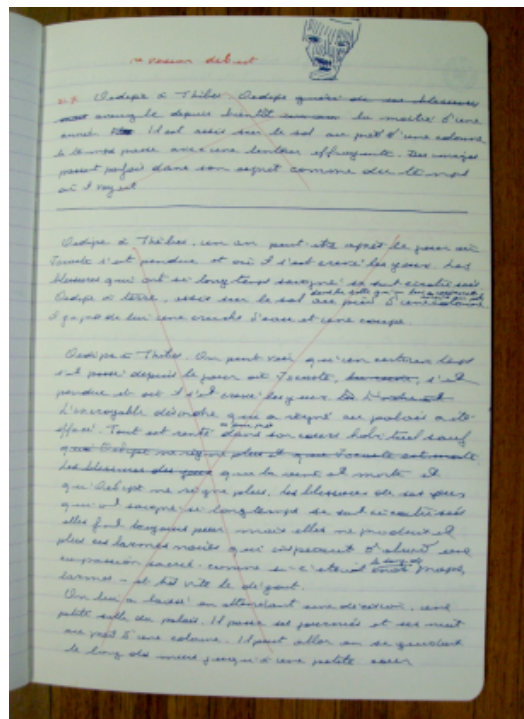 1re version début
21.9. Oedipe à Thèbes Oedipe guéri de ses blessures
aveugle depuis bientôt la moitié d'une
année. Il est assis sur le sol au pied d'une colonne
le temps passe avec une lenteur effrayante. Des nuages
passent parfois dans son esprit comme du temps
où il voyait
Oedipe à Thèbes, un an peut-être après le jour où
Jocaste s'est pendue et où il s'est crevé les yeux. Les
blessures qui ont si longtemps saigné se sont cicatrisées
Oedipe à terre, assis sur le sol au pied d'une colonne
il y a près de lui une cruche d'eau et une coupe.
Oedipe à Thèbes. On peut voir qu'un certain temps
s'est passé depuis le jour où Jocaste, s'est
pendue et où il s'est crevé les yeux
L'incroyable désordre qui a régné au palais a été
effacé. Tout est rentré dans son cours habituel sauf
que Oedipe ne règne plus et que Jocaste est morte.
Les blessures des yeux que la est morte et
qu'Oedipe ne règne plus. Les blessures de ses yeux
qui ont saigné si longtemps se sont cicatrisées
elles font toujours peur mais elles ne produisent
plus ces larmes noires qui inspiraient d'abord une
compassion sacrée comme si c'était
larmes - et très vite le dégoût.
On lui a laissé en attendant une décision, une
petite salle du palais. Il passe ses journées et ses nuits
au pied d'une colonne. Il peut aller en se guidant
le long des murs jusqu'à une petite cour